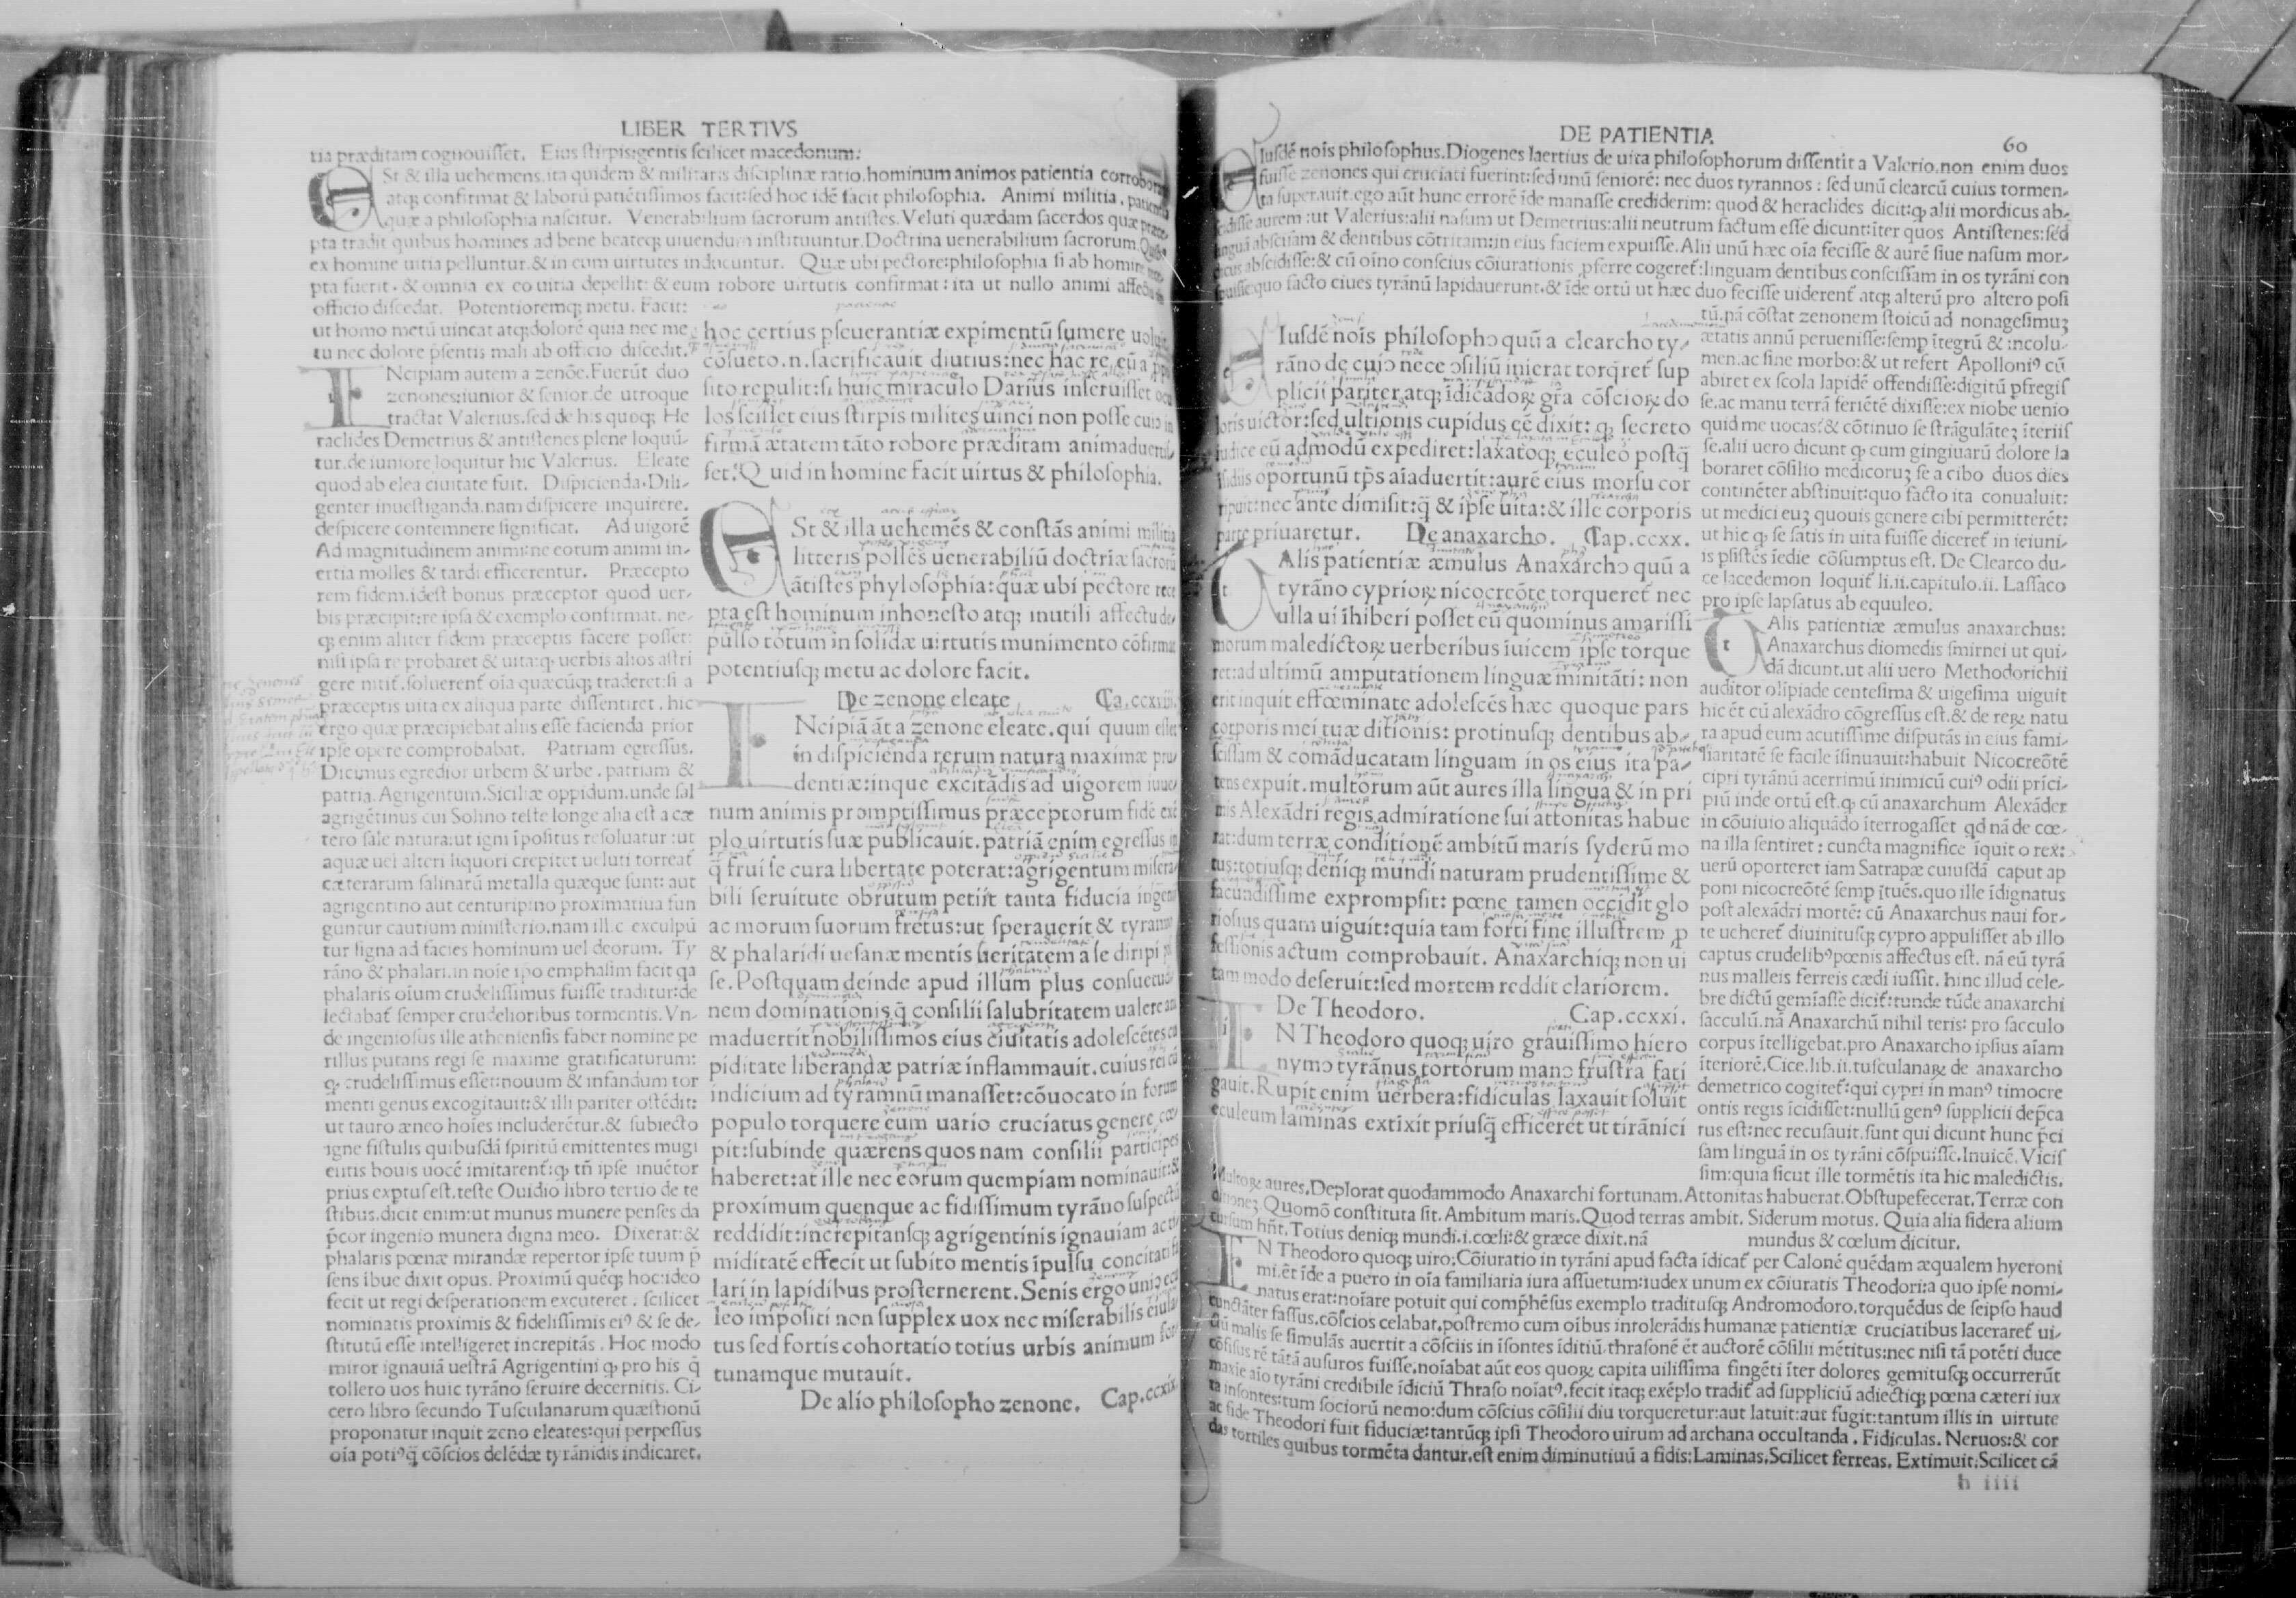 LIBER TERTIVS
tia præditam cognouisset. Eius stirpis:gentis scilicet macedonum:
ESt & illa uehemens.ita quidem & militaris disciplinæ ratio.hominum animos patientia corrobora
atq; confirmat & laborũ patiẽtissimos facit:sed hoc idẽ facit philosophia. Animi militia. patientia
quæ a philosophia nascitur. Venerabilium sacrorum antistes.Veluti quædam sacerdos quæ præce
pta tradit quibus homines ad bene beateq; uiuendum instituuntur.Doctrina uenerabilium sacrorum.
ex homine uitia pelluntur.& in eum uirtutes inducuntur. Quæ ubi pectore:philosophia si ab homine rece
pta fuerit.& omnia ex eo uitia depellit: & eum robore uirtutis confirmat:ita ut nullo animi affectu
officio discedat. Potentioremq; metu. Facit:
ut homo metũ uincat atq;dolorẽ quia nec me
tu nec dolore p̃sentis mali ab officio discedit.
INcipiam autem a zenõe.Fuerũt duo
zenones:iunior & senior.de utroque
tractat Valerius.sed de his quoq; He
raclides Demetrius & antistenes plene loquũ-
tur.de iuniore loquitur hic Valerius. Eleate
quod ab elea ciuitate fuit. Dispicienda.Dili-
genter inuestiganda.nam dispicere inquirere.
despicere contemnere significat. Ad uigorẽ
Ad magnitudinem animi:ne eorum animi in-
ertia molles & tardi efficerentur. Præcepto
rem fidem.idest bonus præceptor quod uer-
bis præcipit:re ipsa & exemplo confirmat. ne-
q; enim aliter fidem præceptis facere posset:
nisi ipsa re probaret & uita:q̃ uerbis alios astri
gere nitit̃.soluerent̃ oĩa quæcũq; traderet:si a
præceptis uita ex aliqua parte dissentiret. hic
ergo quæ præcipiebat aliis esse facienda prior
ipse opere comprobabat. Patriam egressus.
Dicimus egredior urbem & urbe. patriam &
patria. Agrigentum.Siciliæ oppidum.unde sal
agrigẽtinus cui Solino teste longe alia est a cæ
tero sale natura:ut igni ĩpositus resoluatur:ut
aquæ uel alteri liquori crepitet ueluti torreat̃
cæterarum salinarũ metalla quæque sunt: aut
agrigentino aut centuripino proximatiua fun
guntur cautium ministerio.nam illic exculpũ
tur signa ad facies hominum uel deorum. Ty
rãno & phalari.in noĩe ipo emphasim facit qa
phalaris oĩum crudelissimus fuisse traditur:de
lectabat̃ semper crudelioribus tormentis. Vn-
de ingeniosus ille atheniensis faber nomine pe
rillus putans regi se maxime gratificaturum:
q̃ crudelissimus esset:nouum & infandum tor
menti genus excogitauit:& illi pariter ostẽdit:
ut tauro æneo hoĩes includerẽtur.& subiecto
igne fistulis quibusdã spiritũ emittentes mugi
entis bouis uocẽ imitarent̃:q̃ tñ ipse inuẽtor
prius exptus est.teste Ouidio libro tertio de te
stibus.dicit enim:ut munus munere penses da
p̃cor ingenio munera digna meo. Dixerat:&
phalaris pœnæ mirandæ repertor ipse tuum p̃
sens ibue dixit opus. Proximũ quẽq; hoc:ideo
fecit ut regi desperationem excuteret. scilicet
nominatis proximis & fidelissimis eiꝰ & se de-
stitutũ esse intelligeret increpitãs. Hoc modo
miror ignauiã uestrã Agrigentini q̃ pro his q̃
tollero uos huic tyrãno seruire decernitis. Ci-
cero libro secundo Tusculanarum quæstionũ
proponatur inquit zeno eleates:qui perpessus
oĩa potiꝰq̃ cõscios delẽdæ tyrãnidis indicaret.
hoc certius pseuerantiæ expimentũ sumere uoluit
cõsueto.n.sacrificauit diutius:nec hac re eũ a ppo
sito repulit:si huic miraculo Darius inseruisset ocu
los scisset eius stirpis milites uinci non posse cuiꝰ in
firmã ætatem tãto robore præditam animaduertis-
set. Quid in homine facit uirtus & philosophia.
ESt & illa uehemẽs & constãs animi militia
litteris pollẽs uenerabiliũ doctriæ sacrorũ
ãtistes phylosophia:quæ ubi pectore rece
pta est hominum inhonesto atq; inutili affectu de
pulso totum in solidæ uirtutis munimento cõfirmat
potentiusq; metu ac dolore facit.
De zenone eleate Ca.ccxiii.
INcipiã ãt a zenone eleate. qui quum esset
in dispicienda rerum natura maximæ pru
dentiæ:inque excitãdis ad uigorem iuue
num animis promptissimus præceptorum fidẽ exẽ
plo uirtutis suæ publicauit. patriã enim egressus in
q̃ frui se cura libertate poterat:agrigentum misera
bili seruitute obrutum petiit tanta fiducia ingenii
ac morum suorum fretus:ut sperauerit & tyranno
& phalaridi uesanæ mentis ueritatem a se diripi pos
se. Postquam deinde apud illum plus consuetudi
nem dominationis q̃ consilii salubritatem ualere ani
maduertit nobilissimos eius ciuitatis adolescẽtes cu
piditate liberandæ patriæ inflammauit. cuius rei cũ
indicium ad tyramnũ manasset:cõuocato in forum
populo torquere eum uario cruciatus genere cœ
pit:subinde quærens quos nam consilii participes
haberet:at ille nec eorum quempiam nominauit:&
proximum quenque ac fidissimum tyrãno suspectũ
reddidit:increpitansq; agrigentinis ignauiam ac ti
miditatẽ effecit ut subito mentis ĩpulsu concitati
lari in lapidibus prosternerent. Senis ergo uniꝰ ecu
leo impositi non supplex uox nec miserabilis eiula
tus sed fortis cohortatio totius urbis animum for
tunamque mutauit.
De alio philosopho zenone. Cap.ccxix.
DE PATIENTIA
60
EIusdẽ noĩs philosophus.Diogenes laertius de uita philosophorum dissentit a Valerio.non enim duos
fuisse zenones qui cruciati fuerint:sed unũ seniorẽ: nec duos tyrannos: sed unũ clearcũ cuius tormen-
ta superauit.ego aũt hunc errorẽ ĩde manasse crediderim: quod & heraclides dicit:q̃ alii mordicus ab-
scidisse aurem:ut Valerius:alii nasum ut Demetrius:alii neutrum factum esse dicunt:ĩter quos Antistenes:sed
linguã abscisam & dentibus cõtritam:in eius faciem expuisse.Alii unũ hæc oĩa fecisse & aurẽ siue nasum mor-
dicus abscidisse:& cũ oĩno conscius cõiurationis pferre cogeret̃:linguam dentibus conscissam in os tyrãni con
spuisse:quo facto ciues tyrãnũ lapidauerunt.& ĩde ortũ ut hæc duo fecisse uiderent̃ atq; alterũ pro altero posi
tũ.nã cõstat zenonem stoicũ ad nonagesimuȝ
ætatis annũ peruenisse:semp ĩtegrũ & ĩncolu-
men.ac sine morbo:& ut refert Apolloniꝰ cũ
abiret ex scola lapidẽ offendisse:digitũ pfregis
se.ac manu terrã feriẽtẽ dixisse:ex niobe uenio
quid me uocas?& cõtinuo se strãgulãteȝ ĩteriis
se.alii uero dicunt q̃ cum gingiuarũ dolore la
boraret cõsilio medicoruȝ se a cibo duos dies
continẽter abstinuit:quo facto ita conualuit:
ut medici euȝ quouis genere cibi permitterẽt:
ut hic q̃ se satis in uita fuisse diceret̃ in ieiuni-
is psistẽs ĩedie cõsumptus est. De Clearco du-
ce lacedemon loquit̃ li.ii.capitulo.ii. Lassaco
pro ipse lapsatus ab equuleo.
EIusdẽ noĩs philosophꝰ quũ a clearcho ty-
rãno de cuiꝰ nece ↄsiliũ inierat torq̃ret̃ sup
plicii pariter atq; ĩdicãdoꝝ grã cõscioꝝ do
loris uictor:sed ultionis cupidus eẽ dixit: q̃ secreto
iudice eũ admodũ expediret:laxatoq; eculeo postq̃
ĩsidiis oportunũ tp̃s aĩaduertit:aurẽ eius morsu cor
ripuit:nec ante dimisit:q̃ & ipse uita:& ille corporis
parte priuaretur. De anaxarcho. Cap.ccxx.
TAlis patientiæ æmulus Anaxarchꝰ quũ a
tyrãno cyprioꝝ nicocreõte torqueret̃ nec
ulla ui ĩhiberi posset eũ quominus amarissi
morum maledictoꝝ uerberibus ĩuicem ipse torque
ret:ad ultimũ amputationem linguæ minitãti: non
erit inquit effœminate adolescẽs hæc quoque pars
corporis mei tuæ ditionis: protinusq; dentibus ab-
scissam & comãducatam linguam in os eius ita pa-
tens expuit. multorum aũt aures illa lingua & in pri
mis Alexãdri regis admiratione sui attonitas habue
rat:dum terræ conditionẽ ambitũ maris syderũ mo
tus:totiusq; deniq; mundi naturam prudentissime &
facundissime exprompsit: pœne tamen occidit glo
riosius quam uiguit:quia tam forti fine illustrem p
fessionis actum comprobauit. Anaxarchiq; non ui
tam modo deseruit:sed mortem reddit clariorem.
De Theodoro. Cap.ccxxi.
IN Theodoro quoq; uiro grauissimo hiero
nymꝰ tyrãnus tortorum manꝰ frustra fati
gauit.Rupit enim uerbera:fidiculas laxauit soluit
eculeum laminas extixit priusq̃ efficeret ut tirãnici
TAlis patientiæ æmulus anaxarchus:
Anaxarchus diomedis smirnei ut qui-
dã dicunt.ut alii uero Methodorichii
auditor olipiade centesima & uigesima uiguit
hic ẽt cũ alexãdro cõgressus est.& de reꝝ natu
ra apud eum acutissime disputãs in eius fami-
liaritatẽ se facile ĩsinuauit:habuit Nicocreõtẽ
cipri tyrãnũ acerrimũ inimicũ cuiꝰ odii prici-
piũ inde ortũ est.q̃ cũ anaxarchum Alexãder
in cõuiuio aliquãdo ĩterrogasset qd nã de cœ-
na illa sentiret: cuncta magnifice ĩquit o rex:
uerũ oporteret iam Satrapæ cuiusdã caput ap
poni nicocreõtẽ semp ĩtuẽs.quo ille ĩdignatus
post alexãdri mortẽ: cũ Anaxarchus naui for-
te ueheret̃ diuinitusq; cypro appulisset ab illo
captus crudelibꝰ pœnis affectus est. nã eũ tyrã
nus malleis ferreis cædi iussit. hinc illud cele-
bre dictũ gemĩasse dicit̃:tunde tũde anaxarchi
sacculũ.nã Anaxarchũ nihil teris: pro sacculo
corpus ĩtelligebat.pro Anaxarcho ipsius aĩam
ĩteriorẽ.Cice.lib.ii.tusculanaꝝ de anaxarcho
demetrico cogitet̃:qui cypri in manꝰ timocre
ontis regis ĩcidisset:nullũ genꝰ supplicii dep̃ca
rus est:nec recusauit.sunt qui dicunt hunc p̃ci
sam linguã in os tyrãni cõspuisse.Inuicẽ. Vicis
sim:quia sicut ille tormẽtis ita hic maledictis.
Multoꝝ aures.Deplorat quodammodo Anaxarchi fortunam.Attonitas habuerat.Obstupefecerat.Terræ con
ditioneȝ.Quomõ constituta sit.Ambitum maris.Quod terras ambit.Siderum motus. Quia alia sidera alium
cursum hñt.Totius deniq; mundi.i.cœli:& græce dixit.nã mundus & cœlum dicitur.
IN Theodoro quoq; uiro:Cõiuratio in tyrãni apud facta ĩdicat̃ per Calonẽ quẽdam æqualem hyeroni
mi.ẽt ĩde a puero in oĩa familiaria iura assuetum:iudex unum ex cõiuratis Theodori:a quo ipse nomi-
natus erat:noĩare potuit qui comp̃hẽsus exemplo traditusq; Andromodoro.torquẽdus de seipso haud
cunctãter fassus.cõscios celabat.postremo cum oĩbus intolerãdis humanæ patientiæ cruciatibus laceraret̃ ui-
ctũ malis se simulãs auertit a cõsciis in ĩsontes ĩditiũ.thrasonẽ ẽt auctorẽ cõsilii mẽtitus:nec nisi tã potẽti duce
cõfisus rẽ tãtã ausuros fuisse.noĩabat aũt eos quoꝝ capita uilissima fingẽti ĩter dolores gemitusq; occurrerũt
maxĩe aĩo tyrãni credibile ĩdiciũ Thraso noĩatꝰ.fecit itaq; exẽplo tradit̃ ad suppliciũ adiectiq; pœna cæteri iux
ta insontes:tum sociorũ nemo:dum cõscius cõsilii diu torqueretur:aut latuit:aut fugit:tantum illis in uirtute
ac fide Theodori fuit fiduciæ:tantũq; ipsi Theodoro uirum ad archana occultanda. Fidiculas. Neruos:& cor
das tortiles quibus tormẽta dantur.est enim diminutiuũ a fidis:Laminas.Scilicet ferreas. Extimuit:Scilicet cã
h iiii